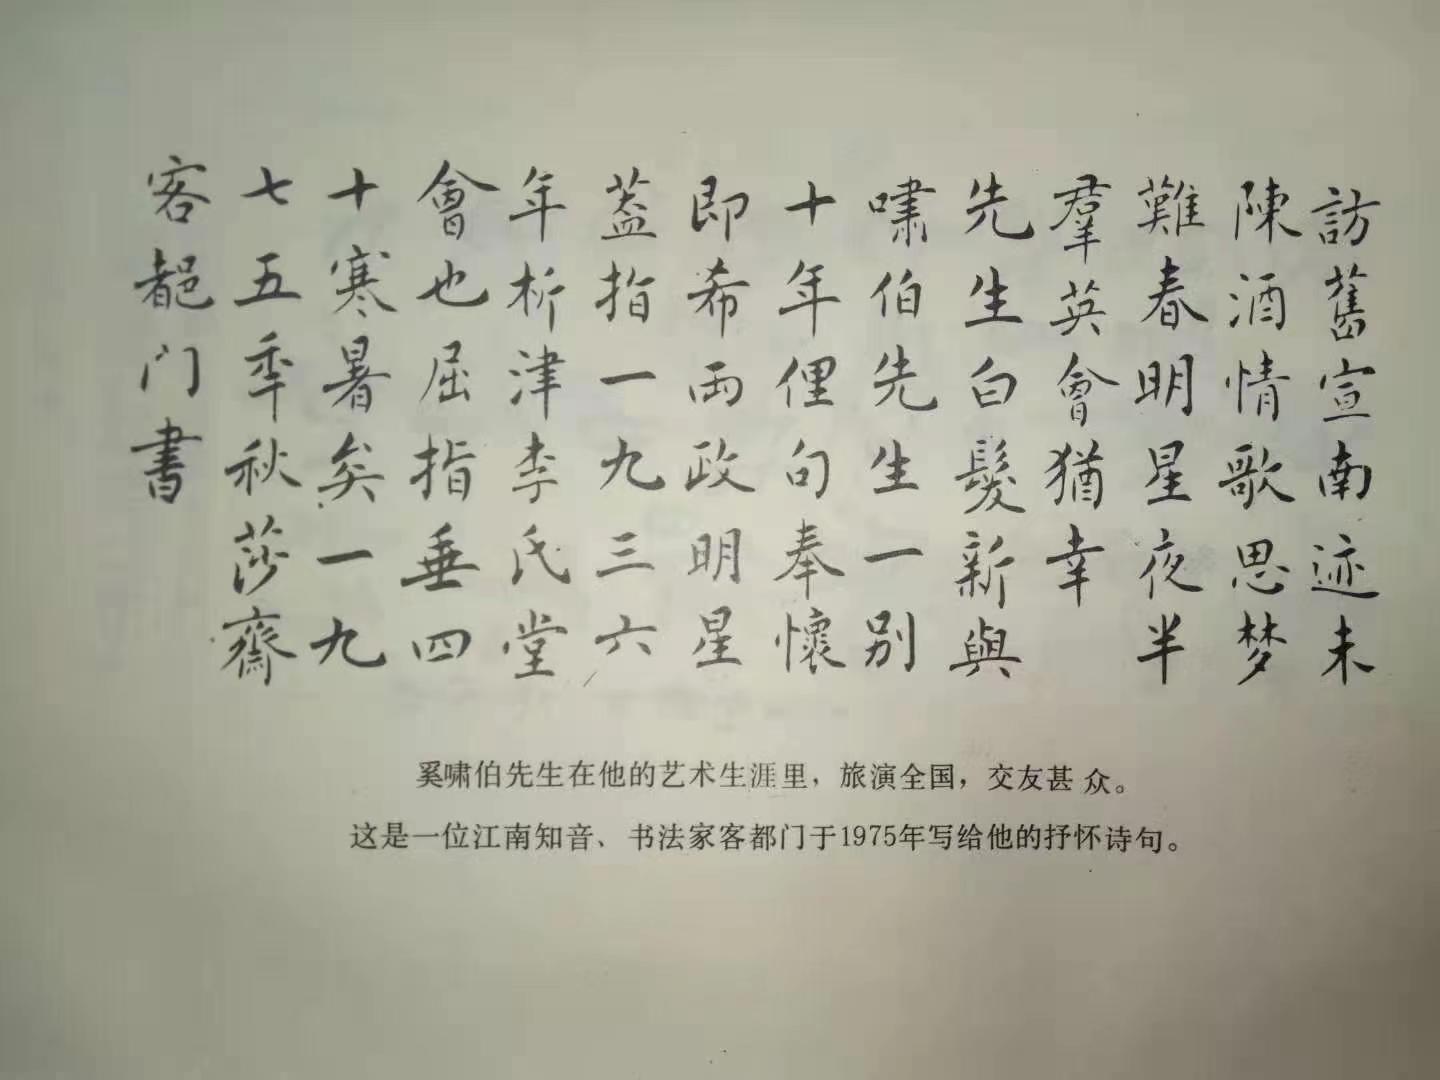 訪舊宣南迹未
陳酒情歌思梦
難春明星夜半
羣英會猶幸
先生白髮新與
嘯伯先生一别
十年俚句奉懷
即希両政明星
蓋指一九三六
年析津李氏堂
會也屈指垂四
十寒暑矣一九
七五季秋莎齋
客都门書
奚啸伯先生在他的艺术生涯里，旅演全国，交友甚众。
这是一位江南知音、书法家客都门于1975年写给他的抒怀诗句。